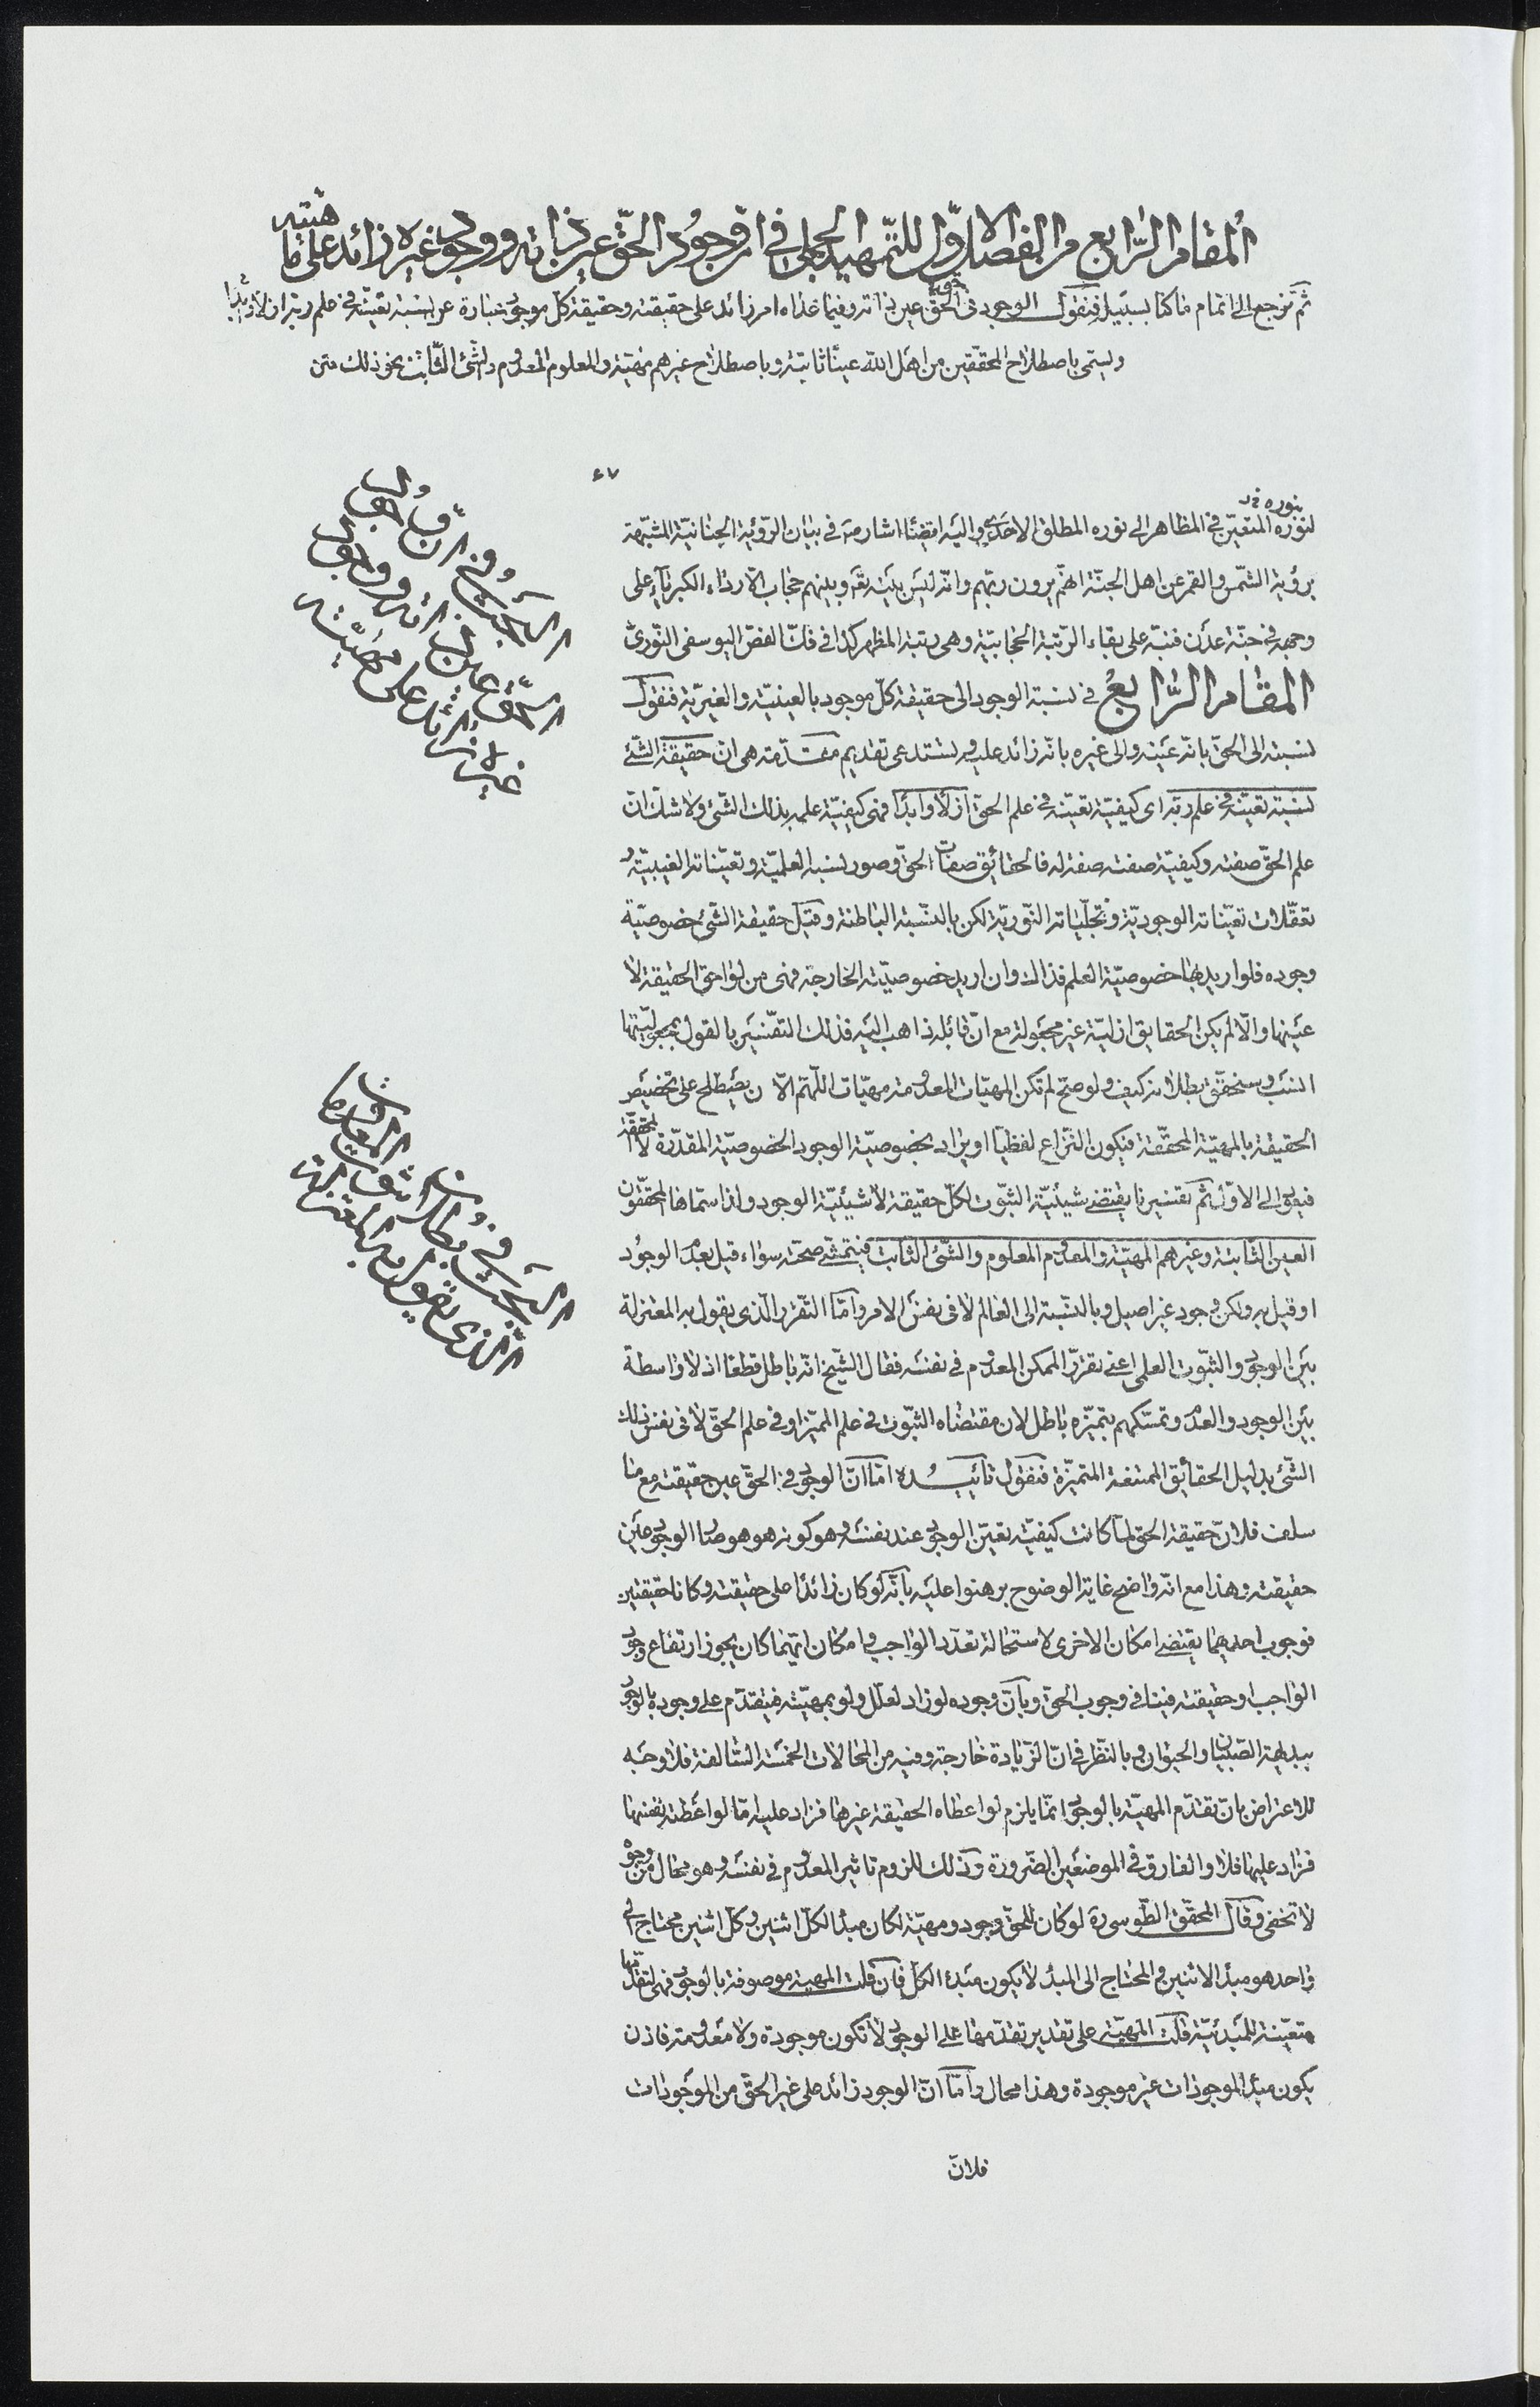 المقام الرّابع من الفصل الاوّل للتّمهيد الجملى فى انّ وجود الحقّ عين ذاته ووجود غيره زائد على ماهيته
ثم نرجع الى اتمام ما كنا بسبيله فنقول الوجود فى حق الحق عين ذاته وفيما عداه امر زائد على حقيقته وحقيقة كلّ موجود عبارة عن نسبة تعيّنه فى علم ربّه ازلا وابدا
ويسمّى باصطلاح المحقّقين من اهل اللّه عينًا ثابتة وباصطلاح غيرهم مهيّة والمعلوم المعدوم والشّىء الثّابت نحو ذلك متن
٤٧
بنوره
لنوره المتعيّن فى المظاهر الى نوره المطلق الاحدى واليه ايضًا اشار ص فى بيان الرّؤية الجنانيّة المشبّهة
برؤية الشّمس والقمر عن اهل الجنّة انّهم يرون ربّهم وانّه ليس بينه تع وبينهم حجاب الّا رداء الكبرياء على
وجهه فى جنّة عدن فنبّه على بقاء الرّتبة الحجابيّة وهى رتبة المظهر كذا فى فكّ الفصّ اليوسفى النّورىّ
المقام الرّابع فى نسبة الوجود الى حقيقة كلّ موجود بالعينيّة والغيريّة فنقول
نسبته الى الحقّ بانّه عينه والى غيره بانّه زائد عليه يستدعى تقديم مقدّمة هى انّ حقيقة الشّىء
نسبة تعيّنه فى علم ربّه اى كيفيّة تعيّنه فى علم الحقّ ازلًا وابدًا فهى كيفيّة علمه بذلك الشّىء ولا شكّ انّ
علم الحقّ صفته وكيفيّة صفته صفة له فالحقائق صفات الحقّ وصور نسبه العلميّة وتعيّناته الغيبيّة و
تعقّلات تعيّناته الوجوديّة وتجلّياته النّوريّة لكن بالنّسبة الباطنة وقيل حقيقة الشّىء خصوصيّة
وجوده فلو اريد بها خصوصيّة العلم فذاك وان اريد خصوصيّته الخارجة فهى من لواحق الحقيقة لا
عينها والّا لم يكن الحقايق ازليّة غير مجعولة مع انّ قائله ذاهب اليه فذلك التفسير بالقول بمجعوليّتها
انسب وسنحقّق بطلانه كيف ولو صحّ لم تكن المهيّات المعدومة مهيّات اللّهمّ الّا ان يصطلح على تخصيص
الحقيقة بالمهيّة المحقّقة فيكون النّزاع لفظيّا او يراد بخصوصيّة الوجود الخصوصيّة المقدّرة لا المحقّقة
فيؤل الى الاوّل ثم تفسيرنا يقتضى شيئيّة الثّبوت لكلّ حقيقة لا شيئيّة الوجود ولذا سمّاها المحقّقون
العين الثّابتة وغيرهم المهيّة والمعدوم المعلوم والشّىء الثّابت فيتمشّى صحّته سواء قيل بعدم الوجود
او قيل به ولكن وجود غير اصيل وبالنّسبة الى العالم لا فى نفس الامر وامّا التّقرّر الّذى يقول به المعتزلة
بين الوجود والثّبوت العلمى اعنى تقرّر الممكن المعدوم فى نفسه فقال الشّيخ انّه باطل قطعًا اذ لا واسطة
بين الوجود والعدم وتمسّكهم بتميّزه باطل لان مقتضاه الثّبوت فى علم المميّز او فى علم الحقّ لا فى نفس ذلك
الشّىء بدليل الحقائق الممتنعة المتميّزة فنقول تأييده امّا انّ الوجود فى الحقّ عين حقيقته مع ما
سلف فلانّ حقيقة الحقّ لمّا كانت كيفيّة تعيّن الوجود عند نفسه وهو كونه هو هو صار الوجود عين
حقيقته وهذا مع انّه واضح غاية الوضوح برهنوا عليه بانّه لو كان زائدًا على حقيقته وكانا حقيقتين
فوجوب احديهما يقتضى امكان الاخرى لاستحالة تعدّد الواجب وامكان ايّهما كان يجوز ارتفاع وجود
الواجب او حقيقته فينافى وجوب الحقّ وبانّ وجوده لو زاد لعلّل ولو بمهيّته فيتقدّم على وجوده بالوجود
ببديهة الصّبيان والحيوان وبالنّظر فى انّ الزّيادة خارجة وفيه من المحالات الخمسة السّالفة فلا وجه
للاعتراض بانّ تقدّم المهيّة بالوجود انّما يلزم لو اعطاه الحقيقة غيرها فزاد عليه امّا لو اعطته نفسها
فزاد عليها فلا والفارق فى الموضعين الضّرورة وذلك للزوم تاثير المعدوم فى نفسه وهو محال من وجوه
لا تخفى وقال المحقّق الطّوسى ره لو كان للحقّ وجود ومهيّة لكان مبدأ لكلّ اثنين وكلّ اثنين محتاج الى
واحد هو مبدأ الاثنين والمحتاج الى المبدأ لا يكون مبدء الكلّ فان قلت المهية موصوفة بالوجود فهى لتقدّمها
متعيّنة للمبدئيّة قلت المهيّة على تقدير تقدّمها على الوجود لا تكون موجودة ولا معدومة فاذن
يكون مبدأ الموجودات غير موجودة وهذا محال وامّا انّ الوجود زائد على غير الحقّ من الموجودات
فلانّ
البحث فى انّ وجود
الحقّ عين ذاته ووجود
غيره زائد على مهيّته
البحث فى بطلان ثبوت المعدومات
الذى يقول به المعتزلة